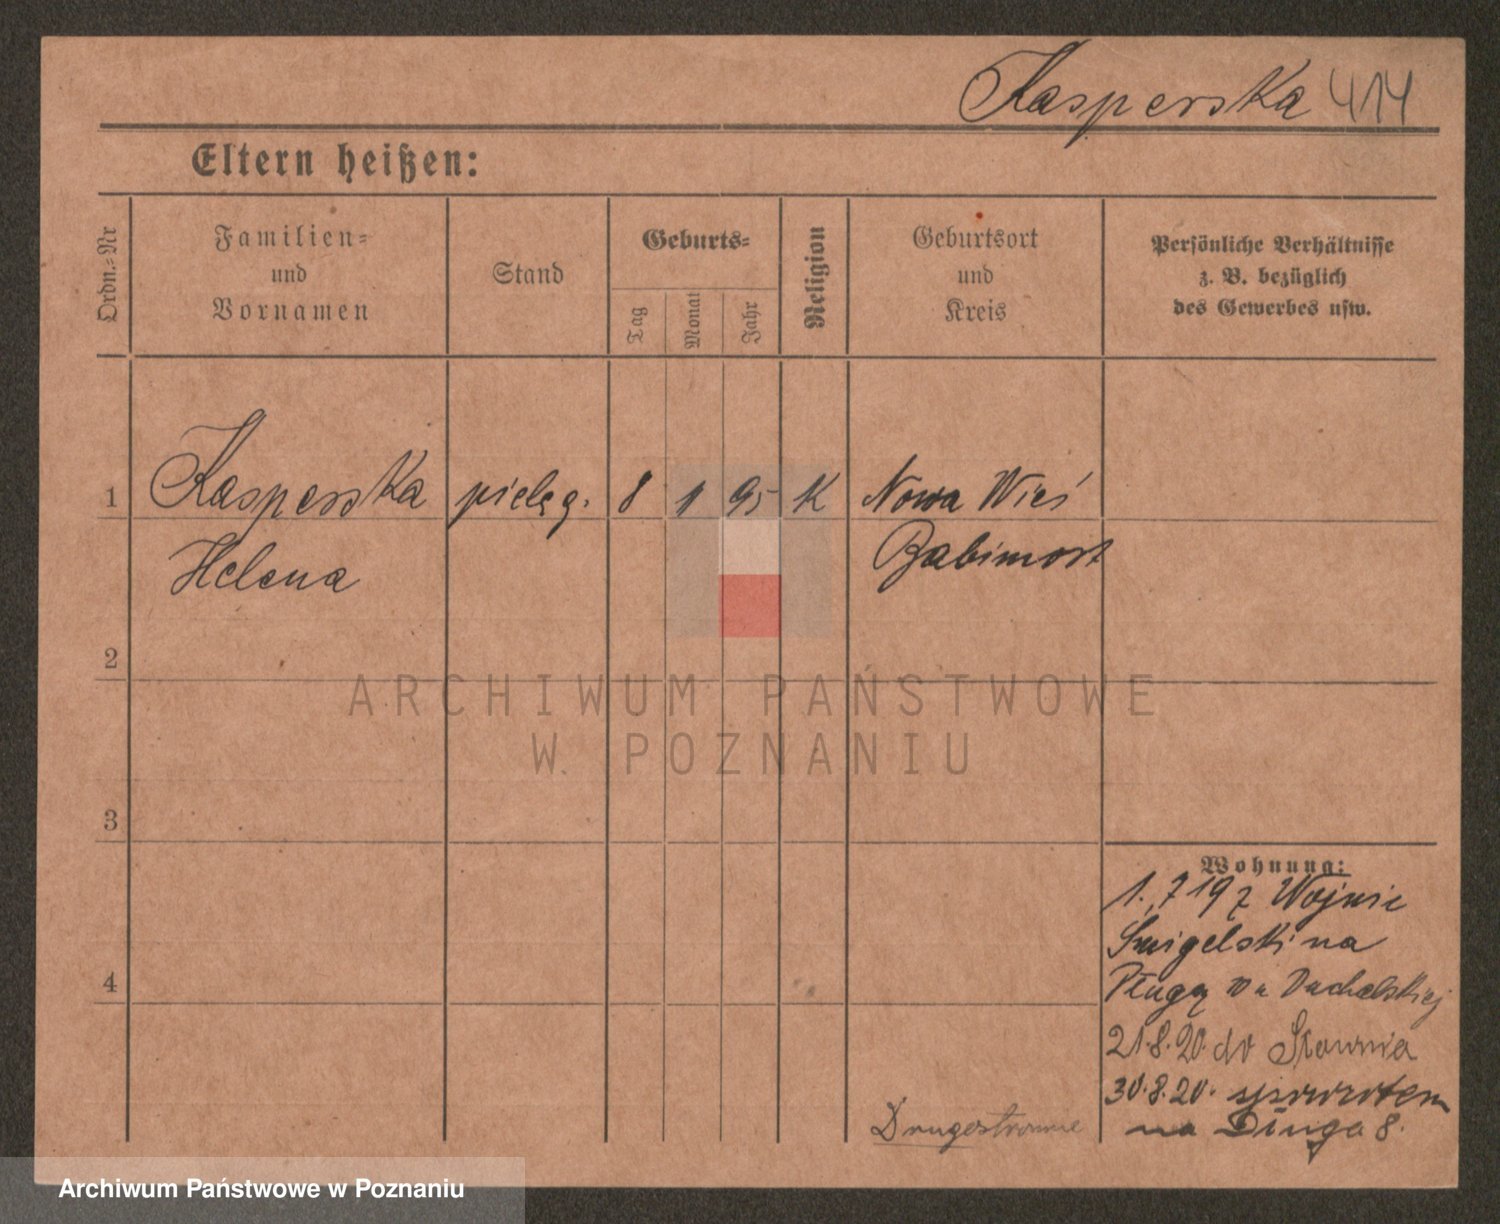 Kasperska 414
Eltern heißen:
Ordn.-Nr
Familien-
und
Vornamen
Stand
Geburts-
Tag
Monat
Jahr
Religion
Geburtsort
und
Kreis
Persönliche Verhältnisse
z. B. bezüglich
des Gewerbes usw.
1 Kasperska pielęg. 8 1 95 K Nowa Wieś
Helena Babimost
2
3
4
Wohnung:
1. 7 19 z
na
21.8.20. do
30.8.20. spowrotem
na Długa 8.
Drugostronnie
ARCHIWUM PAŃSTWOWE
W POZNANIU
Archiwum Państwowe w Poznaniu